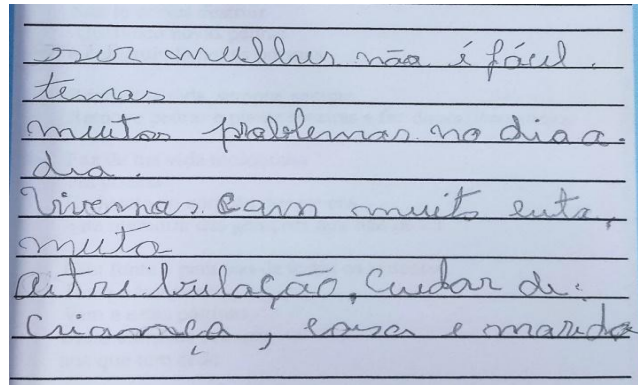 ser mulher não é fácil.
temos
muitos problemas no dia a.
dia.
Vivemos com muito luta,
muta
atribulação, Cuidar de:
Criança, casa e marido